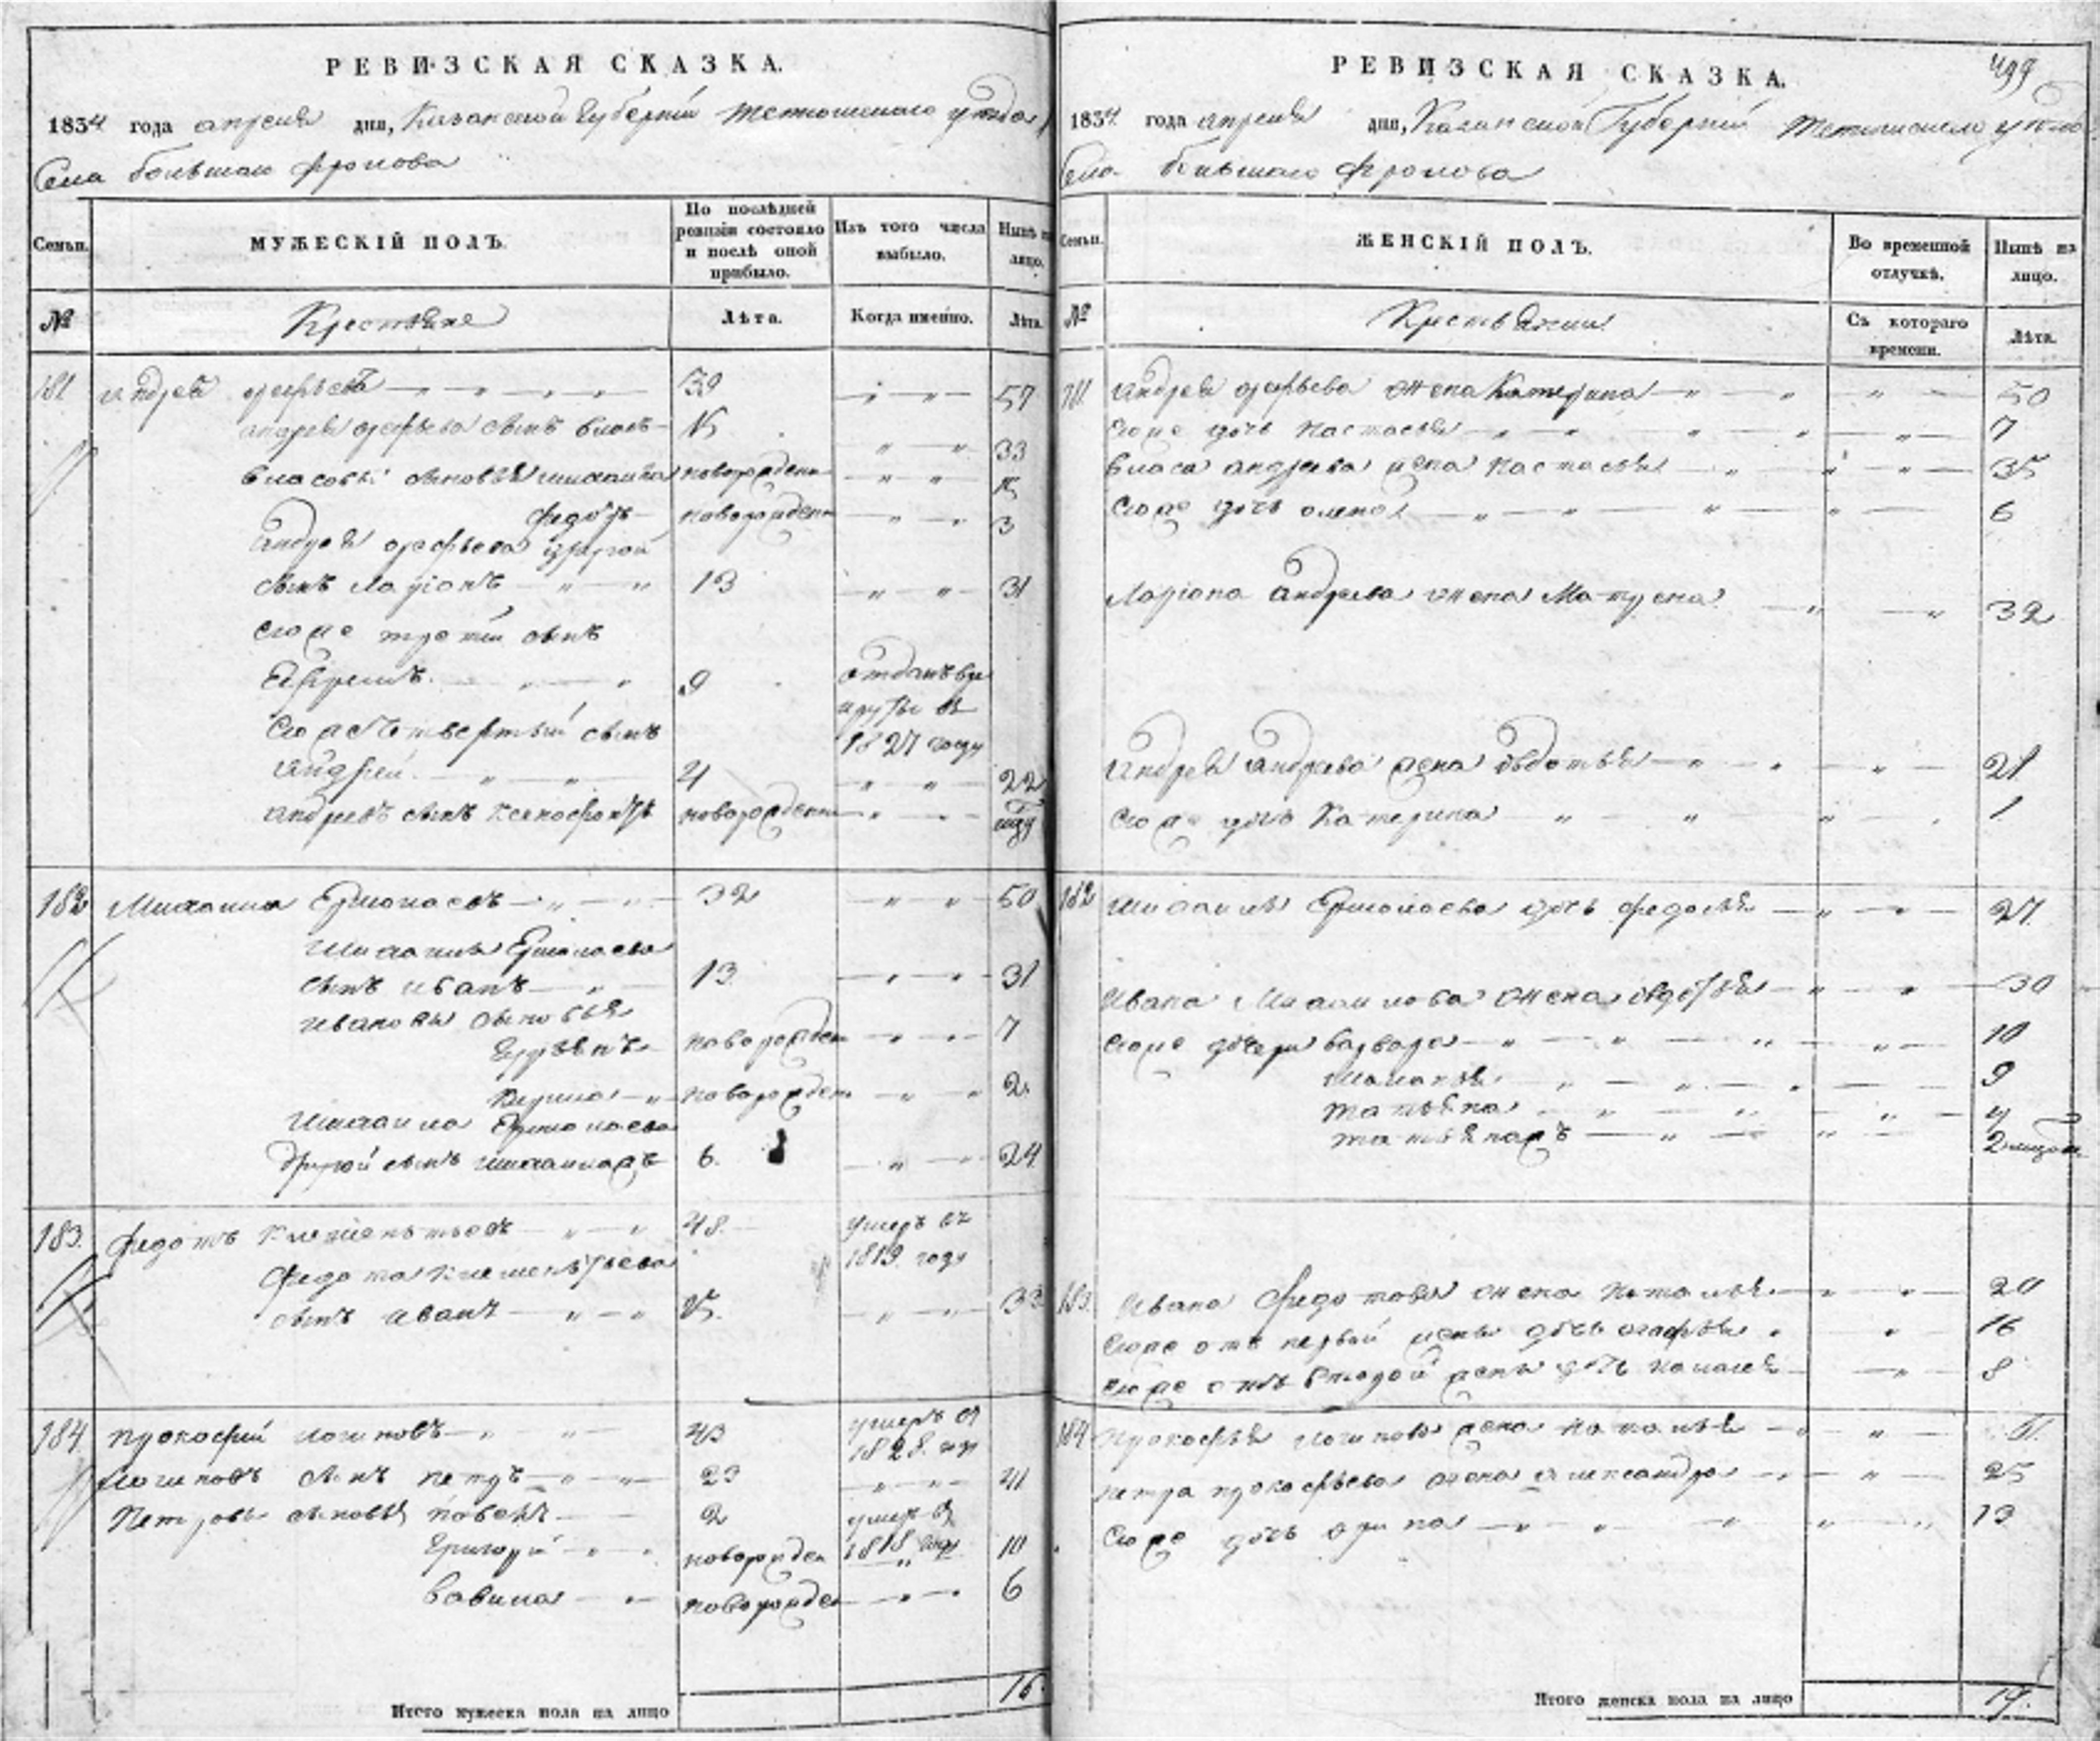 РЕВИЗСКАЯ СКАЗКА.
1834 года апреля дня, Казанской Губернiи Тетюшскаго уезда
Села большаго Фролова
Семьи.
МУЖЕСКІЙ ПОЛЪ.
По послѣдней ревизіи состояло и послѣ оной прибыло.
Изъ того числа выбыло.
Нынѣ на лицо.
№
Крестьяне
Лѣта.
Когда именно.
Лѣта.
181 Андрей " " " " 39 " " 57
Андрея сынъ Власъ 15 " " 33
Власовы сыновья Михайла новорожденъ " " 15
Федотъ новорожден " " 3
Андрея другой
сынъ Ларіонъ " " 13 " " 31
Ево же третiй сынъ
Ефремъ " " 9 отданъ в рекруты в 1827 году
Ево же Четвертый сынъ
Андрей " " 4 " " 22
Андреевъ сынъ Ксенофонтъ новорожденъ " "
182 Михайла Ермолаевъ " " 32 " " 50
Михайлы Ермолаева
сынъ иванъ " 13 " " 31
Ивановы сыновья
новорожден " " 7
Кирила " новорожден " " 2
Михайла Ермолаева
другой сынъ Михайла же 6. " 24
183. Федотъ Клементьевъ " " 48. умеръ въ 1819 году
Федота Клементьева
сынъ иванъ " " 15. " " 33
184 Прокофий Логиновъ " " 43 умеръ въ 1828 году
сынъ петръ " " 23 " " 41
Петровы сыновья павелъ 2 умер в 1818 году
Григорий " " новорожден " 10
Вавила " новорожден " " 6
Итого мужеска пола на лицо 16.
499
РЕВИЗСКАЯ СКАЗКА.
1834 года апреля дня, Казанской Губернiй Тетюшскаго уезда
Села большаго Фролова
Семьи.
ЖЕНСКІЙ ПОЛЪ.
Во временной отлучкѣ.
Нынѣ на лицо.
№
Крестьянки
Съ котораго времени.
Лѣта.
181 Андрея жена Катерина " " " 50
Ево же дочь Настасья " " " " " 7
Власа андреева жена Настасья " " " 35
Ево же дочь олена " " " " 6
Ларiона андреева жена Матрена " " 32
Андрея Андреева жена овдотья " " " 21
Ево же дочь Катерина " " " " 1
182 Михайлы Ермолаева дочь федосья " " 27
Ивана Михайлова жена овдотья " " 30
Ево же дочери варвара " " " " 10
Маланья " " " 9
татьяна " " " " 4
татьяна же " " " 2
183. Ивана Федотова жена Наталья " " 20
Ево же отъ первой жены дочь огафья " " 16
Ево же отъ второй жены дочь " 8
184 Прокофья Логинова жена Наталья " "
петра прокофьева жена александра " " 25
Ево же дочь орина " " " " " 13
Итого женска пола на лицо 19.